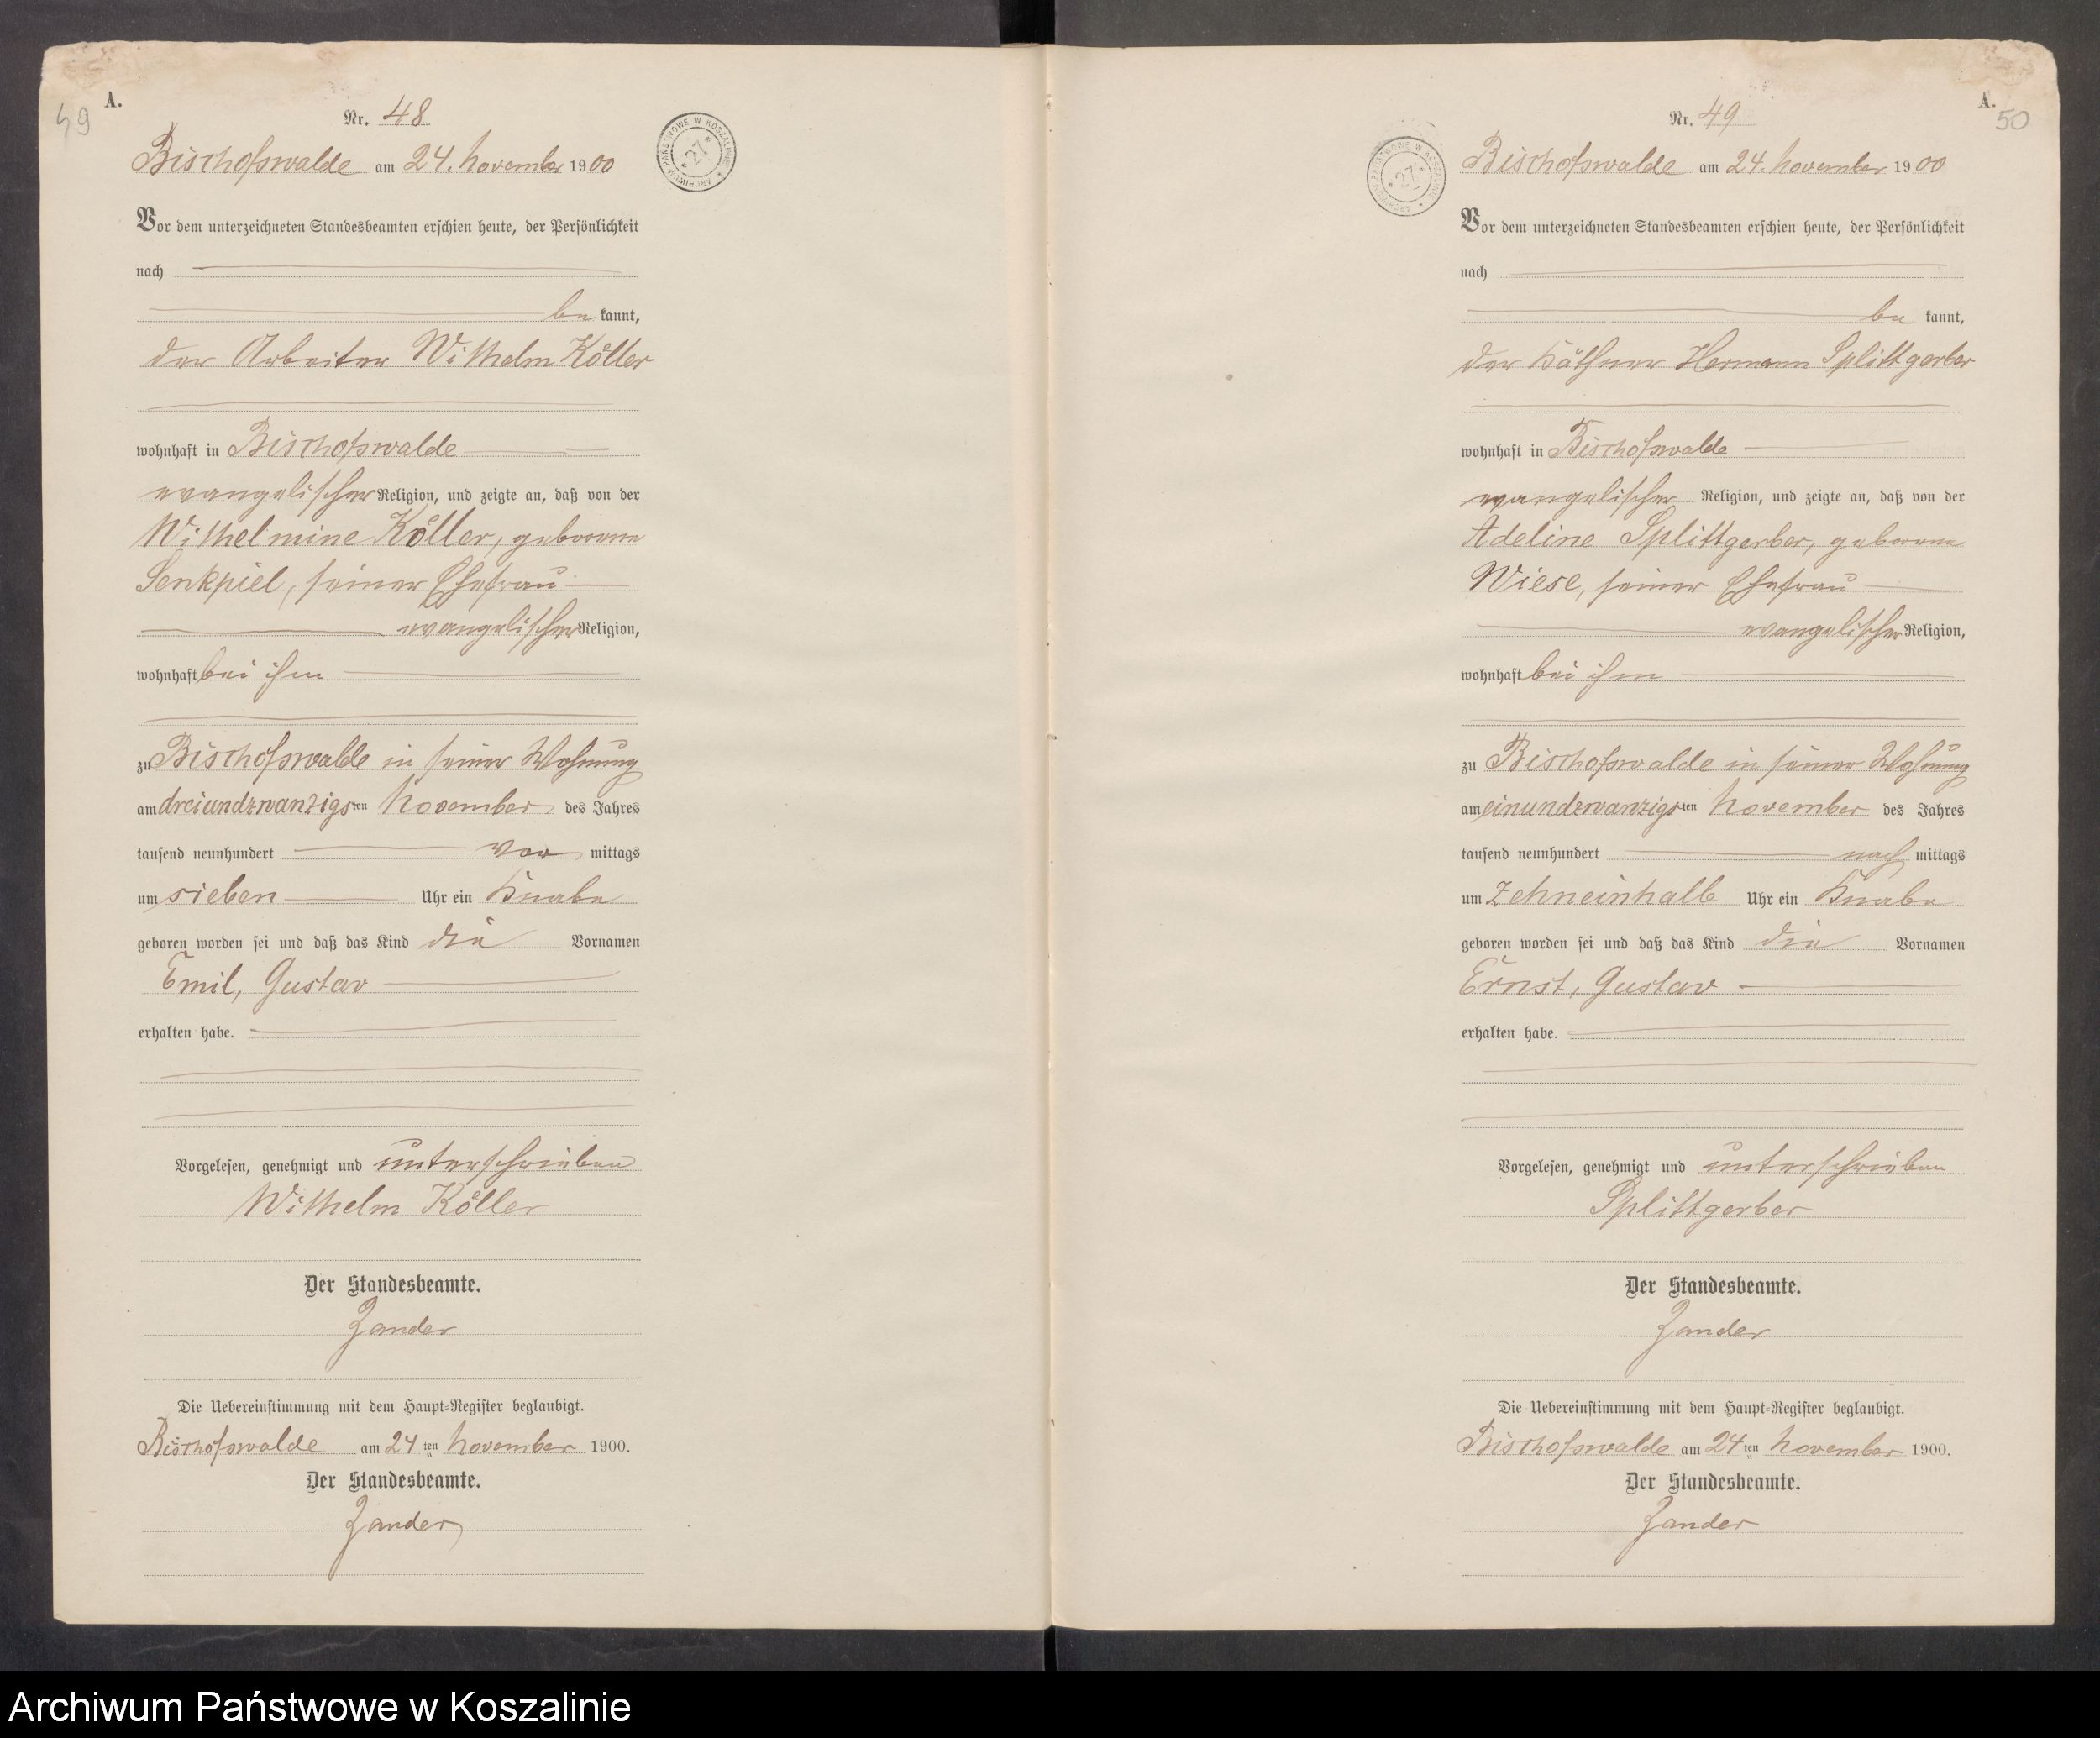 49
A.
Nr. 48
ARCHIWUM PAŃSTWOWE W KOSZALINIE * 27 *
Bischofswalde am 24. November 1900
Vor dem unterzeichneten Standesbeamten erschien heute, der Persönlichkeit
nach
be kannt,
der Arbeiter Wilhelm Köller
wohnhaft in Bischofswalde
evangelischer Religion, und zeigte an, daß von der
Wilhelmine Köller, geborene
Senkpiel, seiner Ehefrau
evangelischer Religion,
wohnhaft bei ihm
zu Bischofswalde in seiner Wohnung
am dreiundzwanzigsten November des Jahres
tausend neunhundert vor mittags
um sieben Uhr ein Knabe
geboren worden sei und daß das Kind die Vornamen
Emil, Gustav
erhalten habe.
Vorgelesen, genehmigt und unterschrieben
Wilhelm Köller
Der Standesbeamte.
Zander
Die Uebereinstimmung mit dem Haupt-Register beglaubigt.
Bischofswalde am 24ten November 1900.
Der Standesbeamte.
Zander
A.
50
Nr. 49
ARCHIWUM PAŃSTWOWE W KOSZALINIE * 27 *
Bischofswalde am 24. November 1900
Vor dem unterzeichneten Standesbeamten erschien heute, der Persönlichkeit
nach
be kannt,
der Käthner Hermann Splittgerber
wohnhaft in Bischofswalde
evangelischer Religion, und zeigte an, daß von der
Adeline Splittgerber, geborene
Wiese, seiner Ehefrau
evangelischer Religion,
wohnhaft bei ihm
zu Bischofswalde in seiner Wohnung
am einundzwanzigsten November des Jahres
tausend neunhundert nach mittags
um Zehneinhalb Uhr ein Knabe
geboren worden sei und daß das Kind die Vornamen
Ernst, Gustav
erhalten habe.
Vorgelesen, genehmigt und unterschrieben
Splittgerber
Der Standesbeamte.
Zander
Die Uebereinstimmung mit dem Haupt-Register beglaubigt.
Bischofswalde am 24ten November 1900.
Der Standesbeamte.
Zander
Archiwum Państwowe w Koszalinie